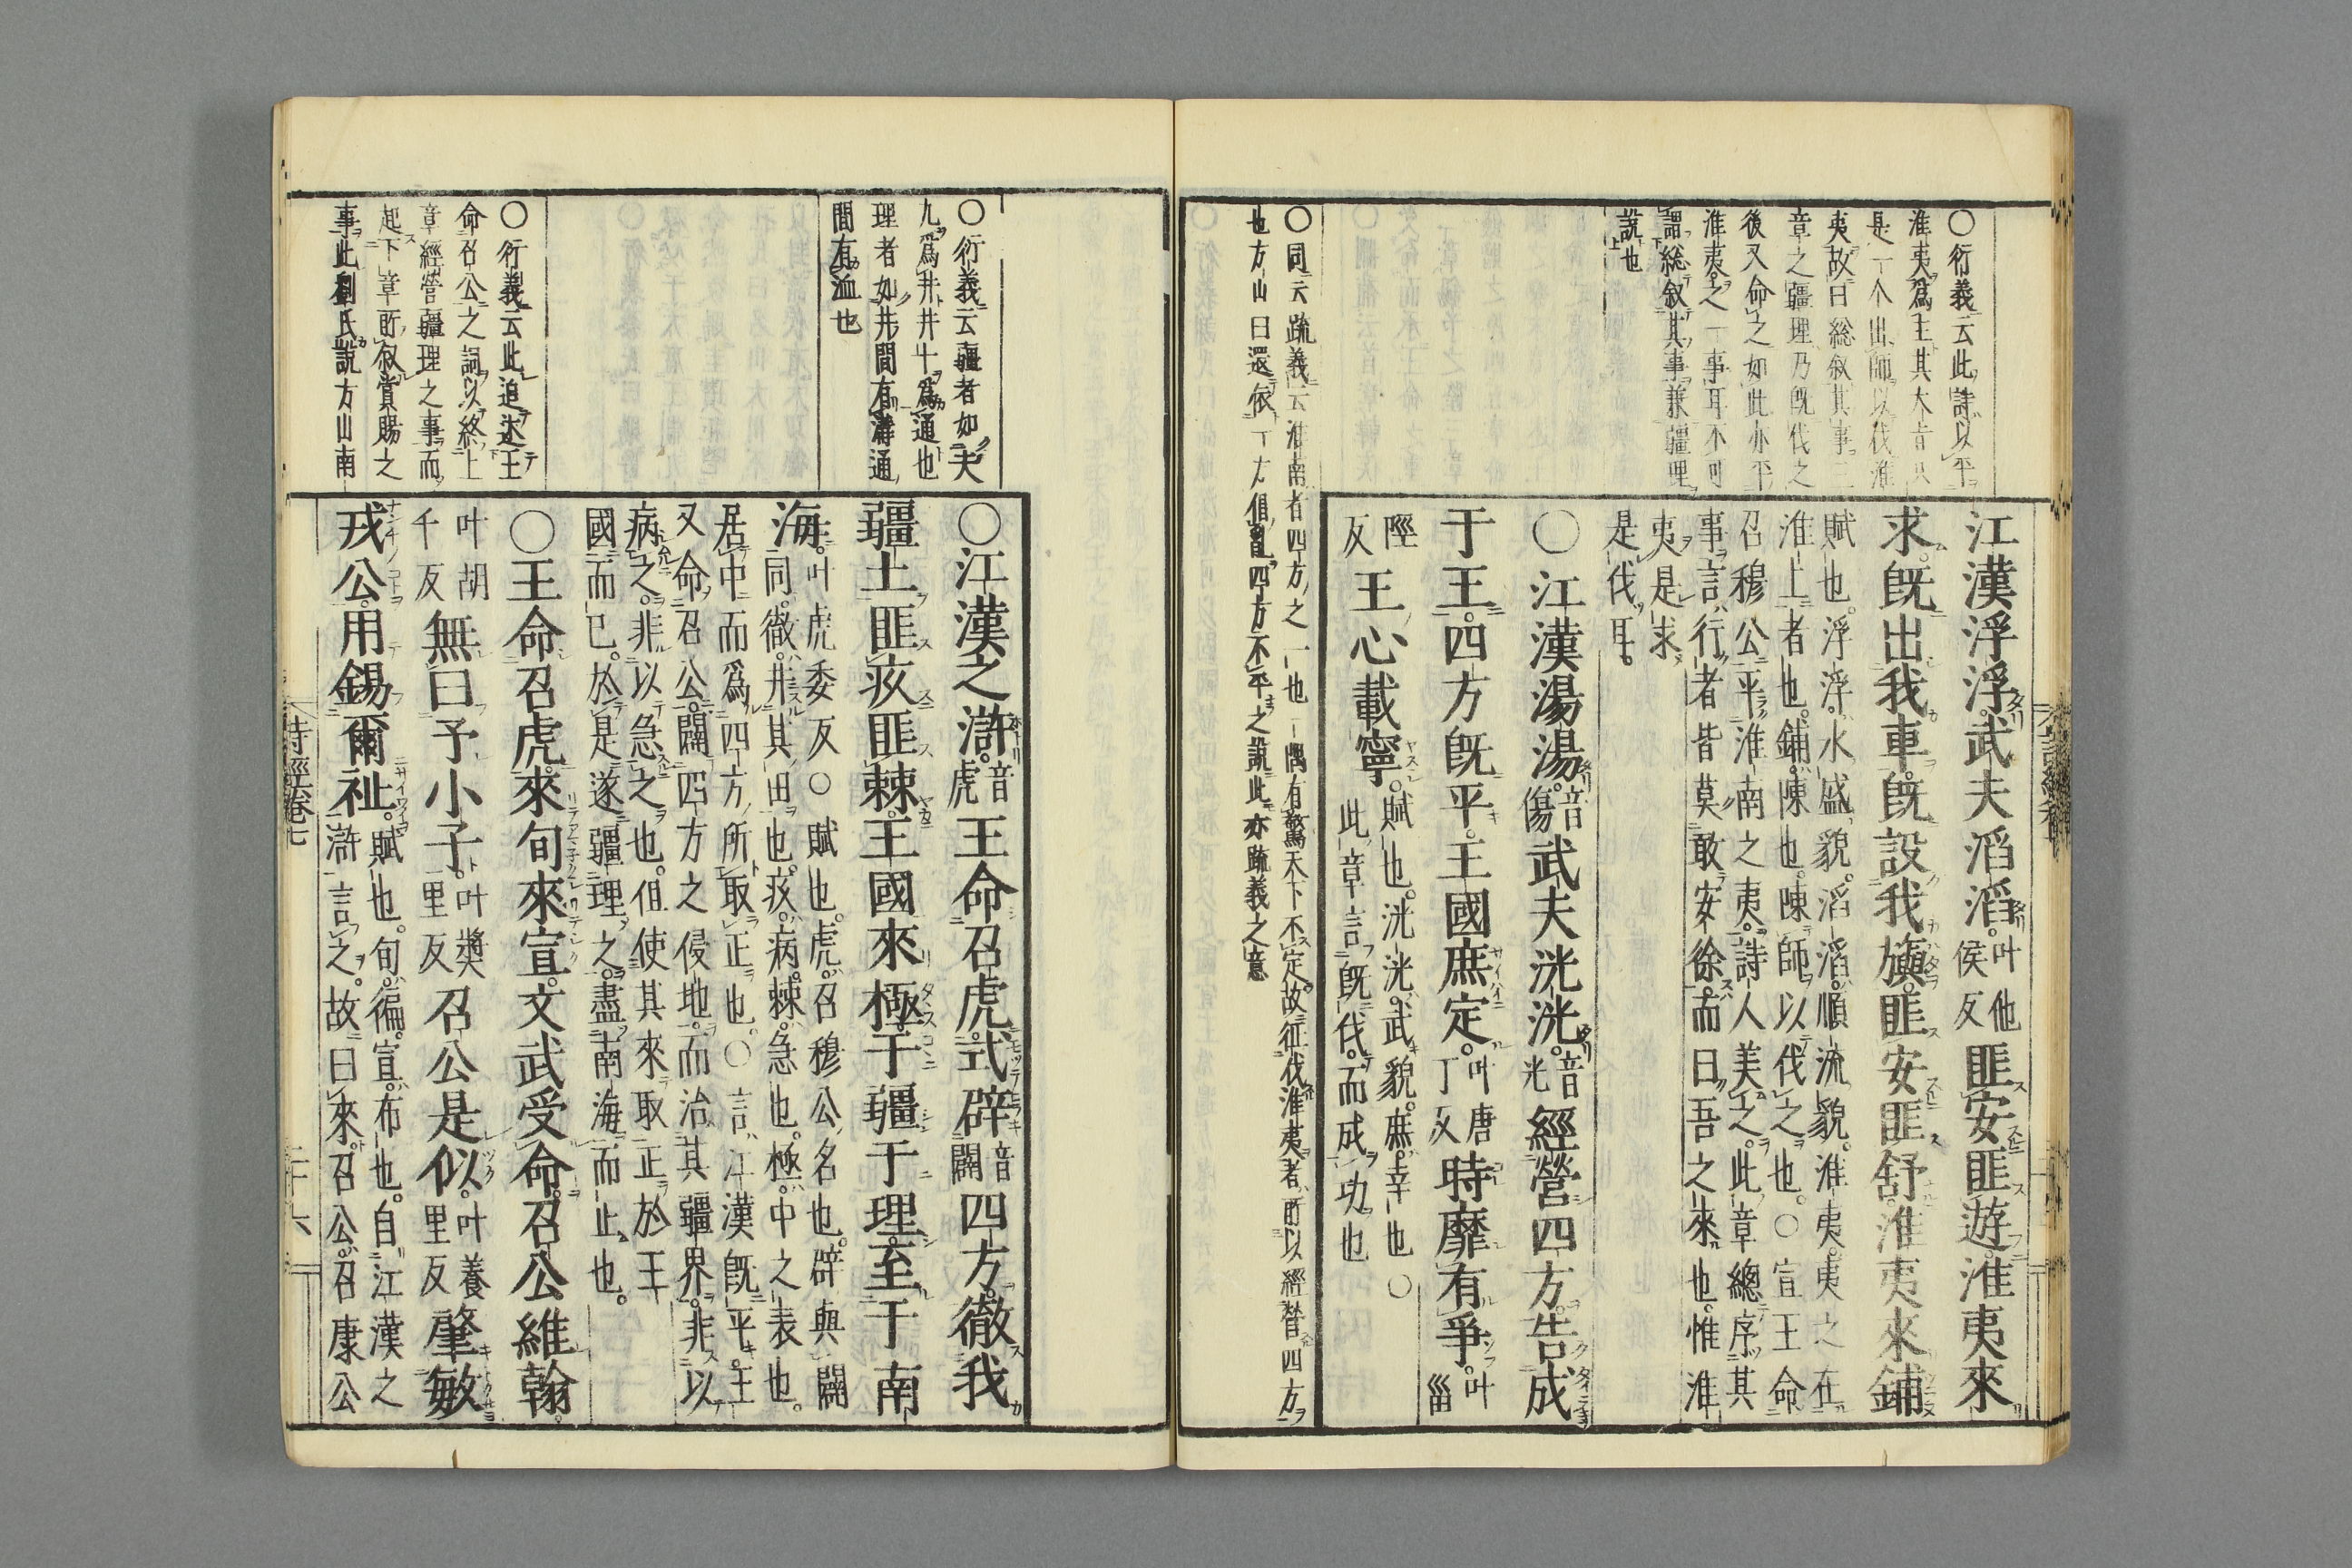 江漢浮浮武夫滔滔叶他侯反匪安匪遊淮夷來
求既出我車既設我旟匪安匪舒淮夷來鋪
賦也浮浮水盛貌滔滔順流貌淮夷夷之在
淮上者也鋪陳也陳師以伐之也○宣王命
召穆公平淮南之夷詩人美之此章總序其
事言行者皆莫敢安徐而曰吾之來也惟淮
夷是求
是伐耳
○江漢湯湯音傷武夫洸洸音光經營四方告成
于王四方既平王國庶定叶唐丁反時靡有爭叶甾
陘反王心載寧賦也洸洸武貌庶幸也○
此章言既伐而成功也
○衍義云此詩以平
淮夷爲主其大旨只
是一个出師以伐淮
夷故曰総叙其事二
章之疆理乃既伐之
後又命之如此亦平
淮夷之一事耳不可
謂総叙其事兼疆理
說也
○同云疏義云淮南者四方之一也一隅有驚天下不定故征伐淮夷者所以經營四方
也方山曰還依一方倡亂四方不平之說此亦疏義之意
○江漢之滸音虎王命召虎式辟音闢四方徹我
疆土匪疚匪棘王國來極于疆于理至于南
海叶虎委反○賦也虎召穆公名也辟與闢
同徹井其田也疚病棘急也極中之表也
居中而爲四方所取正也○言江漢既平王
又命召公闢四方之侵地而治其疆界非以
病之非以急之也但使其來取正於王
國而已於是遂疆理之盡南海而止也
○王命召虎來旬來宣文武受命召公維翰
叶胡千反無曰予小子叶獎里反召公是似叶養里反肇敏
戎公用錫爾祉賦也旬徧宣布也自江漢之
滸言之故曰來召公召康公
○衍義云疆者如夫
九爲井井十爲通也
理者如井間有溝通
間有洫也
○衍義云此追述王
命召公之詞以終上
章經營疆理之事而
起下章所叙賞賜之
事此劉氏說方山南
詩經卷七
二十六